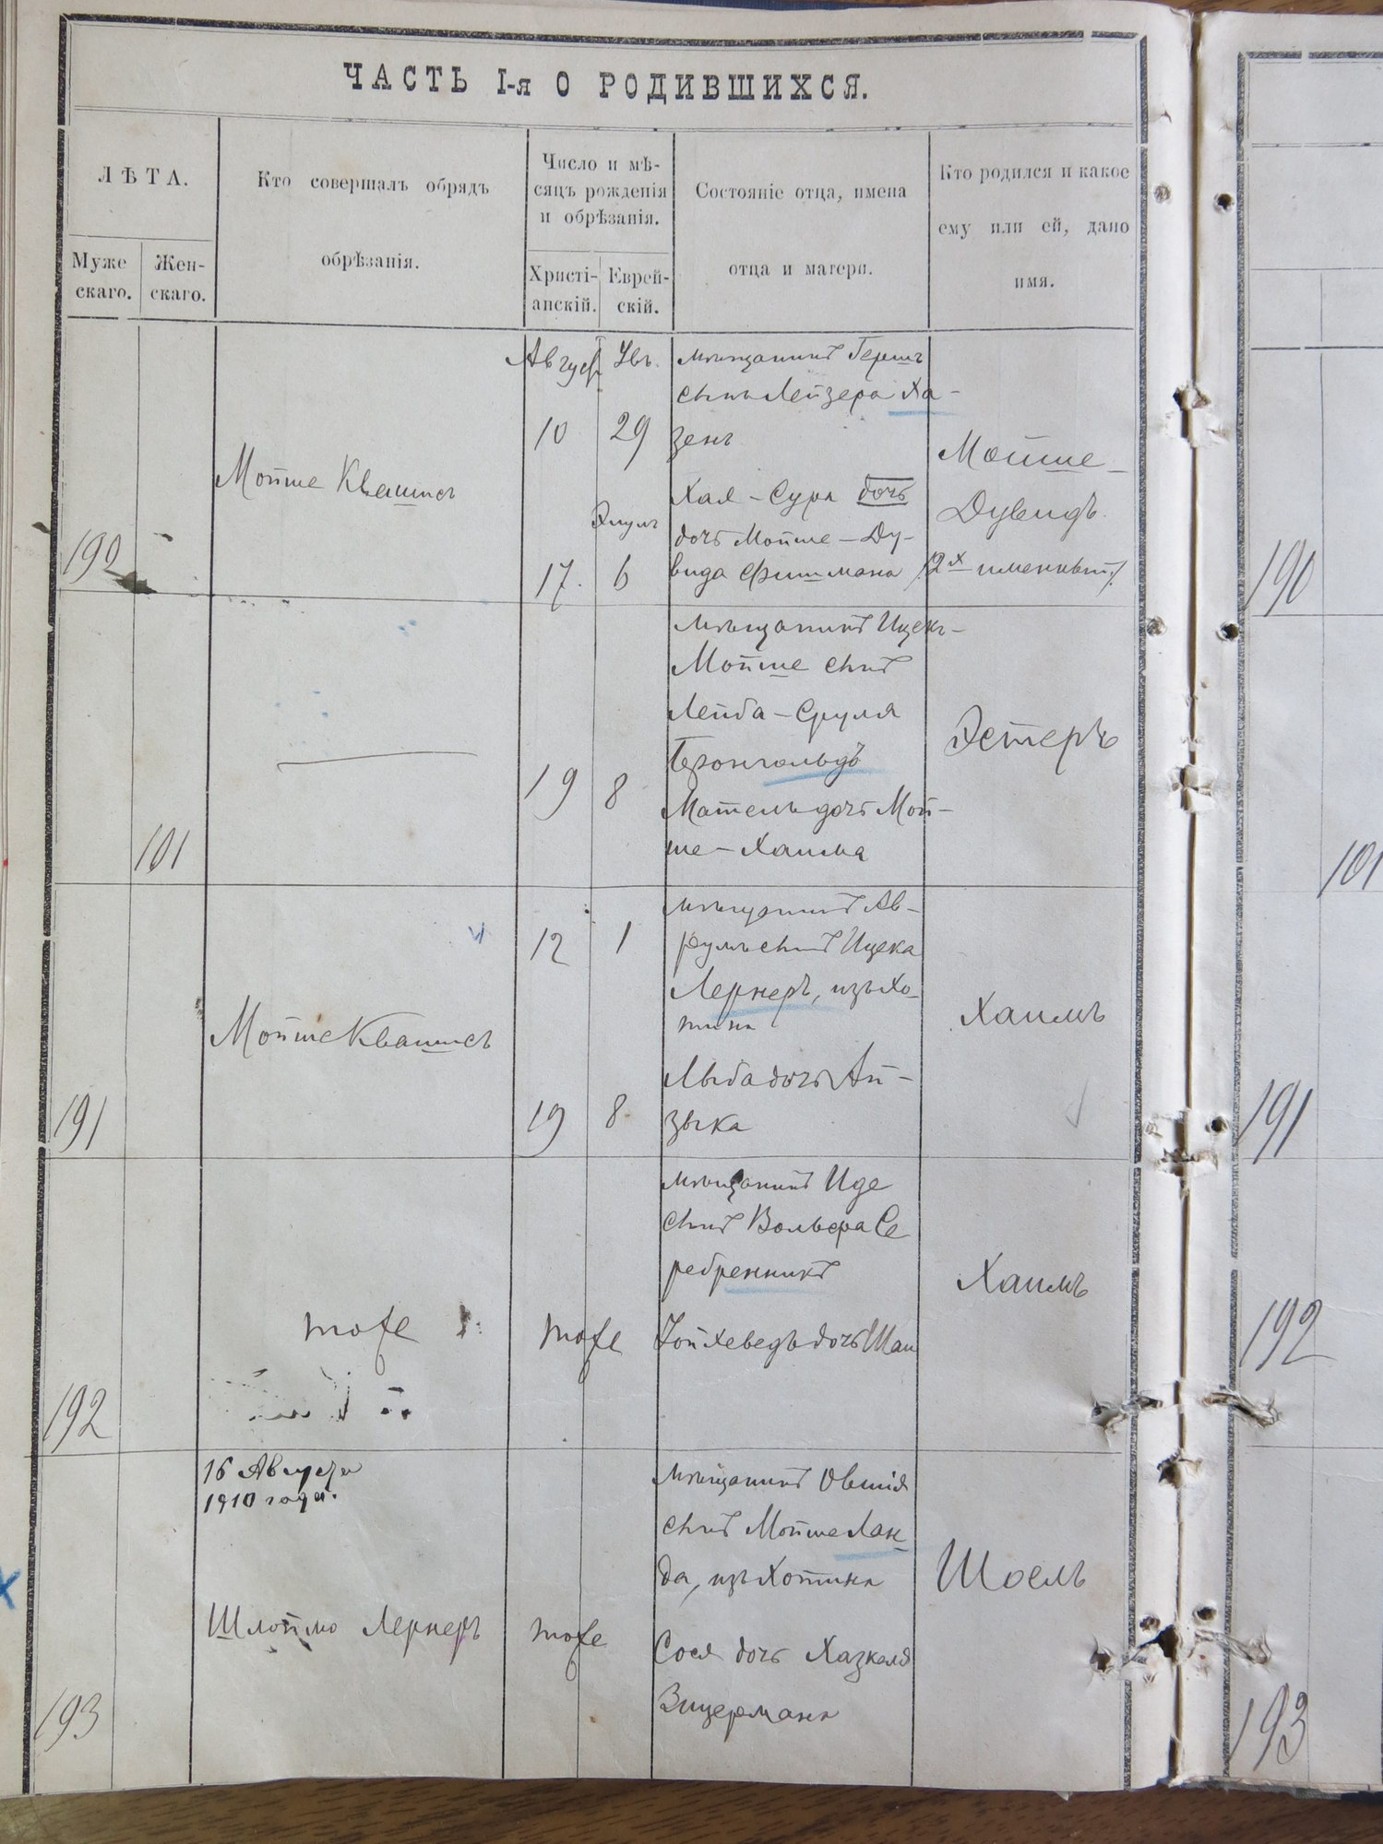 ЧАСТЬ I-я О РОДИВШИХСЯ.
ЛѢТА.
Муже
скаго.
Жен-
скаго.
Кто совершалъ обрядъ
обрѣзанія.
Число и мѣ-
сяцъ рожденія
и обрѣзанія.
Христі-
анскій.
Еврей-
скій.
Состояніе отца, имена
отца и матери.
Кто родился и какое
ему или ей, дано
имя.
190
Мойше Квашисъ
Август
10
17.
Увъ.
29
Элулъ
6
мѣщанинъ Гершъ
сынъ Лейзера Ха-
зенъ
Хая-Сура дочь
дочь Мойше-Ду-
вида Фишмана
Мойше-
Дувидъ.
/2х именный/.
190
101
19
8
мѣщанинъ Ицекъ-
Мойше сынъ
Лейба-Сруля
Бронгольдъ
Матель дочь Мой-
ше-Хаима
Эстеръ
101
191
Мойше Квашисъ
12
1
19
8
мѣщанинъ Ав-
румъ сынъ Ицека
Лернеръ, изъ Хо-
тина
Лыба дочь Ай-
зыка
Хаимъ
191
192
тоже
тоже
мѣщанинъ Иде
сынъ Вольфа Се
ребренникъ
Іойхеведъ дочь Шаи
Хаимъ
192
193
16 Августа
1910 года.
Шлоймо Лернеръ
тоже
мѣщанинъ Овшія
сынъ Мойше Лан-
да, изъ Хотина
Сося дочь Хазкеля
Зицермана
Шоелъ
193